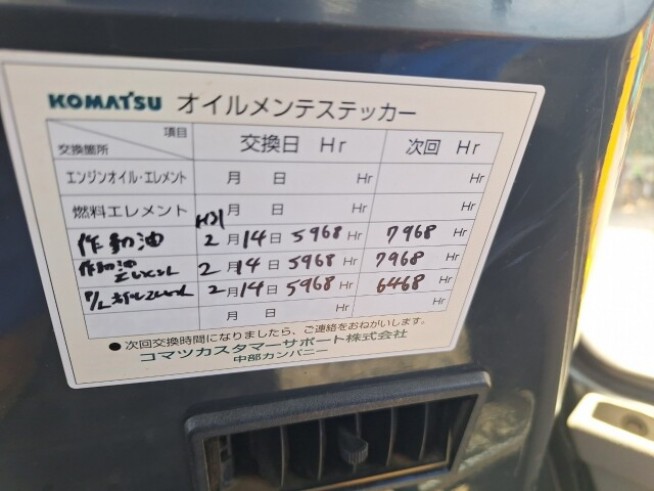 KOMATSU オイルメンテステッカー
項目 交換箇所 交換日 Hr 次回 Hr
エンジンオイル・エレメント 月 日 Hr Hr
燃料エレメント 月 日 Hr Hr
H31
作動油 2月14日 5968 Hr 7968 Hr
作動油エレメント 2月14日 5968 Hr 7968 Hr
2月14日 5968 Hr 6468 Hr
月 日 Hr Hr
● 次回交換時間になりましたら、ご連絡をおねがいします。
コマツカスタマーサポート株式会社
中部カンパニー